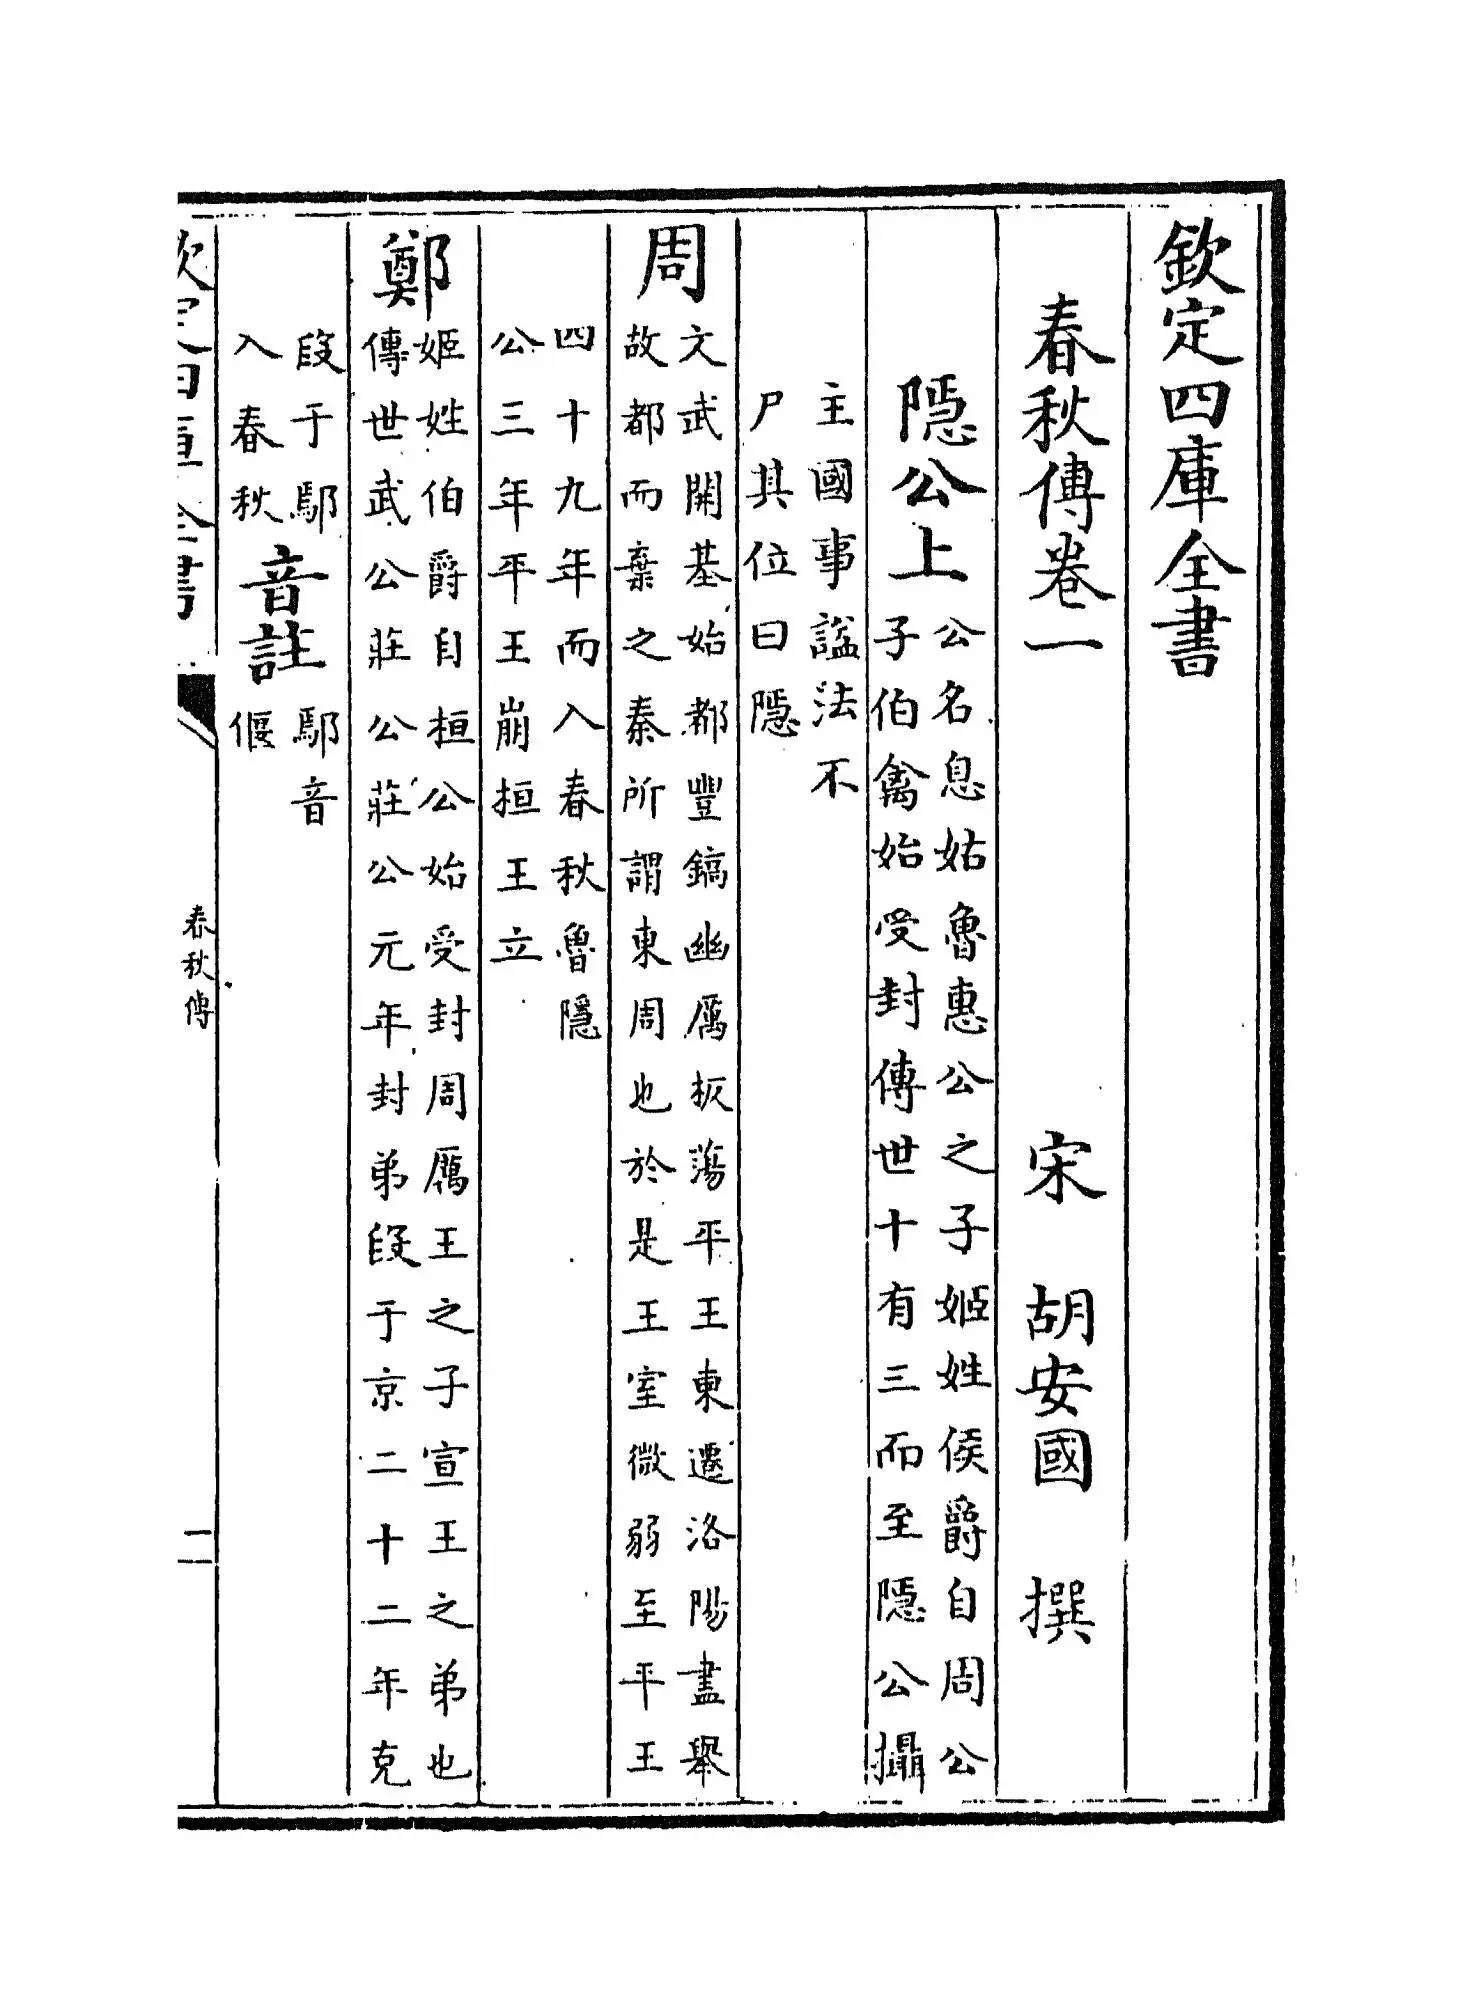 欽定四庫全書
春秋傳卷一 宋 胡安國 撰
隱公上 公名息姑魯惠公之子姬姓侯爵自周公
子伯禽始受封傳世十有三而至隱公攝
主國事諡法不
尸其位曰隱
周 文武開基始都豐鎬幽厲板蕩平王東遷洛陽盡舉
故都而棄之秦所謂東周也於是王室微弱至平王
四十九年而入春秋魯隱
公三年平王崩桓王立
鄭 姬姓伯爵自桓公始受封周厲王之子宣王之弟也
傳世武公莊公莊公元年封弟段于京二十二年克
段于鄢
入春秋
音註 鄢音
偃
欽定四庫全書
春秋傳